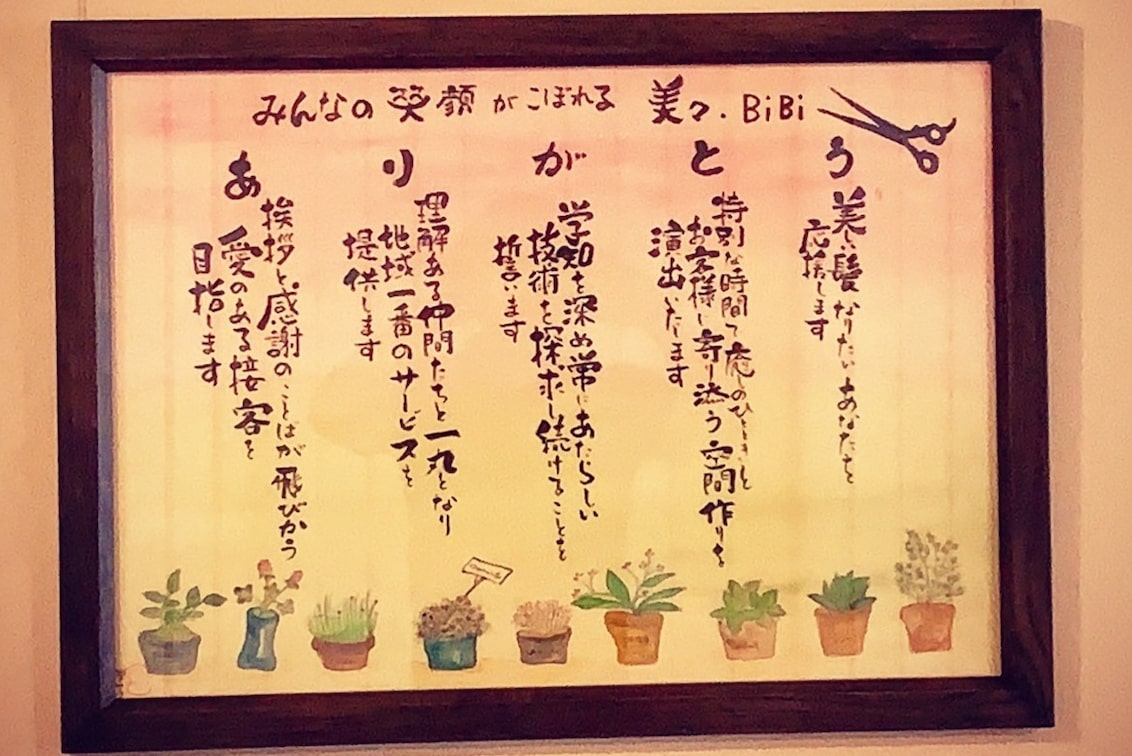 みんなの笑顔がこぼれる 美々・BiBi
あ
挨拶と感謝のことばが飛びかう
愛のある接客を
目指します
り
理解ある仲間たちと一丸となり
地域一番のサービスを
提供します
が
学知を深め常にあたらしい
技術を探求し続けることを
誓います
と
特別な時間で癒しのひとときと
お客様に寄り添う空間作りを
演出いたします
う
美しい髪になりたいあなたを
応援します